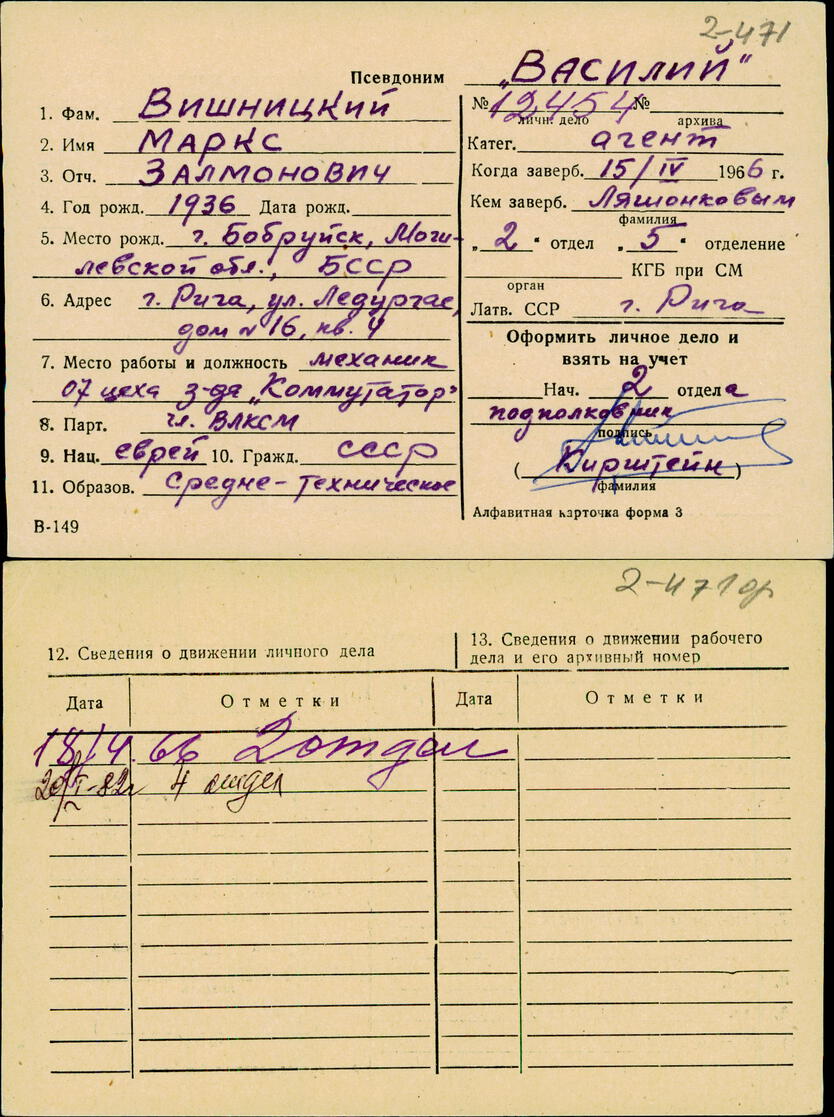 2-471
Псевдоним „ВАСИЛИЙ"
1. Фам. ВИШНИЦКИЙ
2. Имя МАРКС
3. Отч. ЗАЛМОНОВИЧ
4. Год рожд. 1936 Дата рожд.
5. Место рожд. г. Бобруйск, Моги-
левской обл., БССР
6. Адрес г. Рига, ул. Ледургас,
дом № 16, кв. 4
7. Место работы и должность механик
07 цеха з-да „Коммутатор"
8. Парт. чл. ВЛКСМ
9. Нац. еврей 10. Гражд. СССР
11. Образов. средне-техническое
В-149
№ 12454 №
личн. дело архива
Катег. агент
Когда заверб. 15/IV 1966 г.
Кем заверб. Ляшонковым
фамилия
„2" отдел „5" отделение
КГБ при СМ
орган
Латв. ССР г. Рига
Оформить личное дело и
взять на учет
Нач. 2 отдела
подполковник
подпись
(Кирштейн)
фамилия
Алфавитная карточка форма 3
2-471 об
12. Сведения о движении личного дела
13. Сведения о движении рабочего
дела и его архивный номер
Дата Отметки Дата Отметки
18/4.66 2 отдел
4 отдел